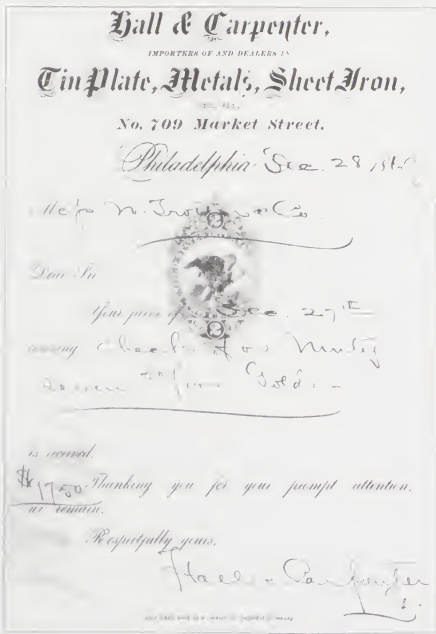 Hall & Carpenter,
IMPORTERS OF AND DEALERS IN
Tin Plate, Metals, Sheet Iron,
No. 709 Market Street.
Philadelphia Dec. 28
& Co
Dear Sir
Your favor of Dec. 27th
covering Check for Ninety
seven
is received.
$97.50 Thanking you for your prompt attention,
we remain,
Respectfully yours,
Hall & Carpenter